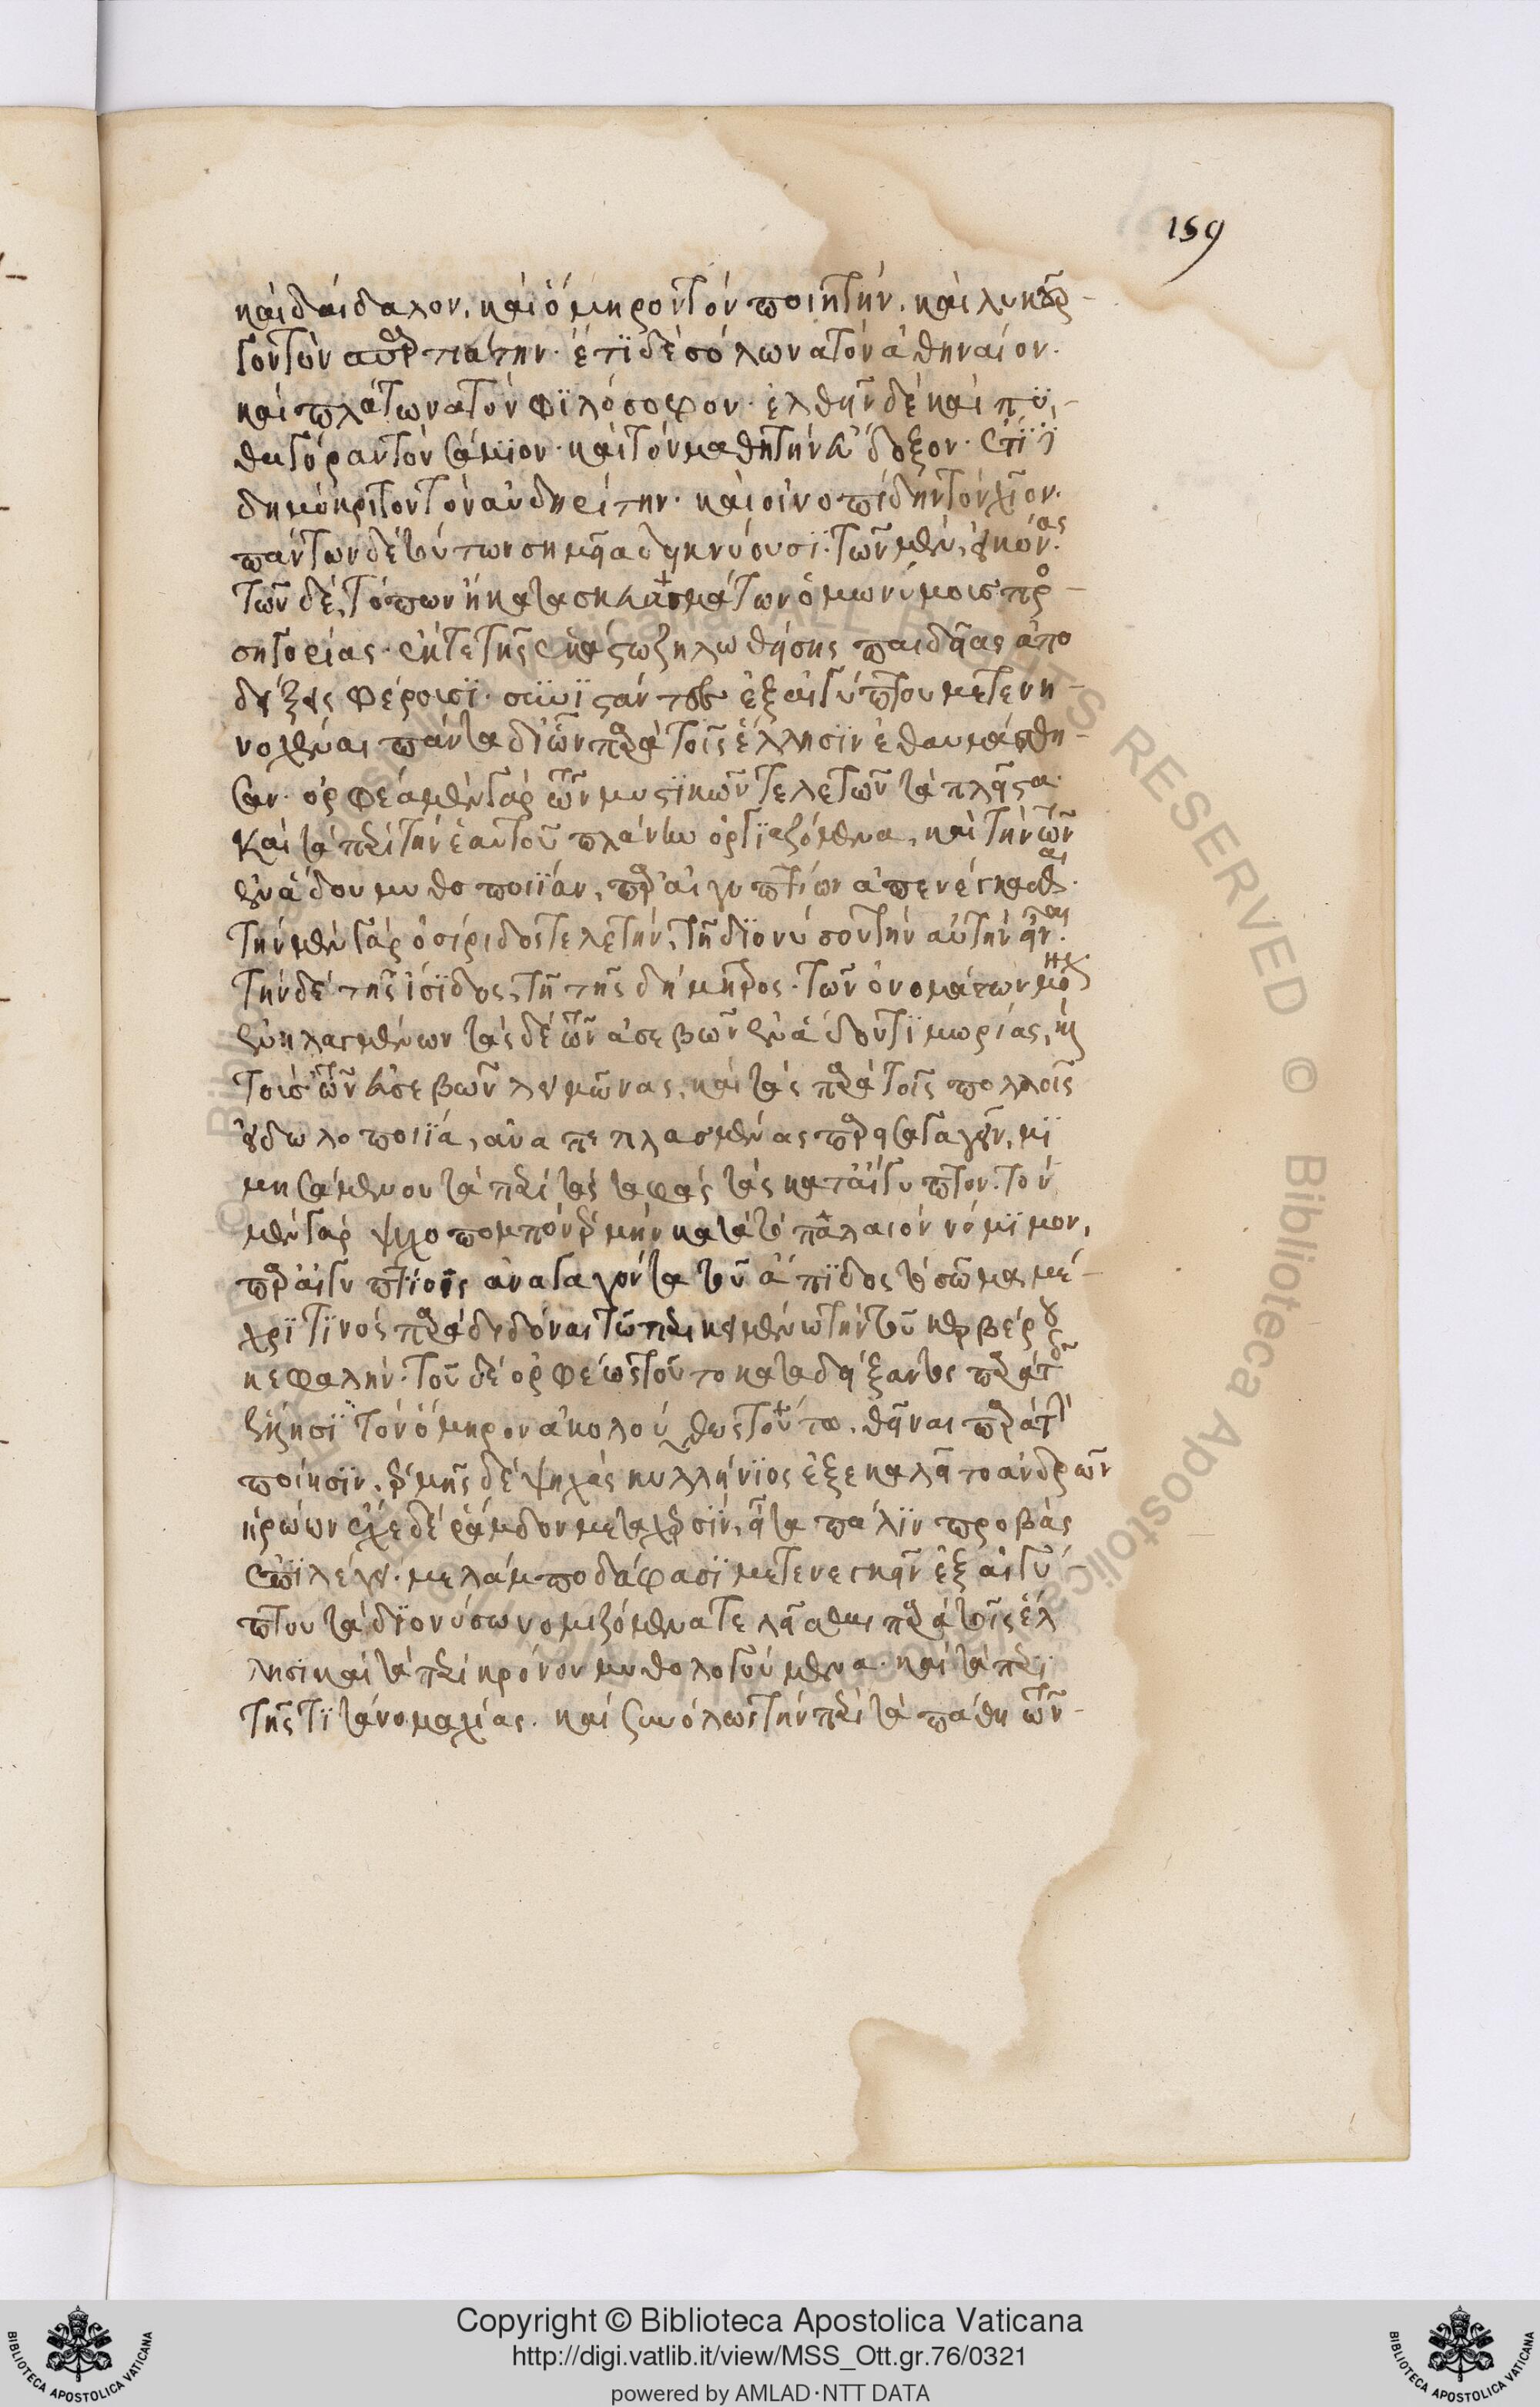 159
καὶ δαίδαλον. καὶ ὅμηρον τὸν ποιητήν. καὶ λυκοῦρ-
γον τὸν σπαρτιάτην. ἔτι δὲ σόλωνα τὸν ἀθηναῖον.
καὶ πλάτωνα τὸν φιλόσοφον. ἐλθεῖν δὲ καὶ πυ-
θαγόραν τὸν σάμιον. καὶ τὸν μαθητὴν εὔδοξον. ἔτι
δημόκριτον τὸν αὐδηρίτην. καὶ οἰνοπίδην τὸν χῖον.
πάντων δὲ τούτων σημεῖα δεικνύουσι. τῶν μὲν, εἰκόνας.
τῶν δὲ, τόπων ἢ κατασκευασμάτων ὁμωνύμοις προ-
σηγορίας. ἔκ τε τῆς ἑκάστω ζηλωθείσης παιδείας ἀπο
δείξεις φέρουσι. συνιστάντες ἐξ αἰγύπτου μετενη-
νοχέναι πάντα δι' ὧν παρὰ τοῖς ἕλλησιν ἐθαυμάσθη-
σαν. ὀρφέα μὲν γὰρ τῶν μυστικῶν τελετῶν τὰ πλεῖστα.
καὶ τὰ περὶ τὴν ἑαυτοῦ πλάνην ὀργιαζόμενα, καὶ τὴν τῶν
ἐν ἅδου μυθοποιίαν, παρ' αἰγυπτίων ἀπενέγκασθαι.
τὴν μὲν γὰρ ὀσίριδος τελετὴν, τῆ διονύσου τὴν αὐτὴν εἶναι.
τὴν δὲ τῆς ἴσιδος, τῆ τῆς δήμητρος. τῶν ὀνομάτων μόνον
ἐνηλαγμένων τὰς δὲ τῶν ἀσεβῶν ἐν ἅδου τιμωρίας, καὶ
τοὺς τῶν εὐσεβῶν λειμῶνας, καὶ τὰς παρὰ τοῖς πολλοῖς
εἰδωλοποιία, ἀναπεπλασμένας παρεισαγαγεῖν, μι
μησάμενον τὰ περὶ τὰς ταφὰς τὰς κατ' αἴγυπτον. τὸν
μὲν γὰρ ψυχοπομπὸν ἑρμὴν κατὰ τὸ παλαιὸν νόμιμον,
παρ' αἰγυπτίοις ἀναγαγόντα τοῦ ἄπιδος τὸ σῶμα μέ-
χρι τινὸς παραδιδόναι τῶ περικειμένω τὴν τοῦ κερβέρου
κεφαλήν. τοῦ δὲ ὀρφέως τοῦτο καταδείξαντος παρὰ τοῖς
ἕλησι τὸν ὅμηρον ἀκολούθως τούτω. θεῖναι παρὰ τὴν
ποίησιν. ἑρμῆς δὲ ψυχὰς κυλλήνιος ἐξεκαλεῖτο ἀνδρῶν
ἡρώων ἔχε δὲ ῥάμδον μετὰ χερσὶν. εἶτα πάλιν προβὰς
ἐπιλέγει. μελάμποδα φασὶ μετενεγκεῖν ἐξ αἰγύ-
πτου τὰ διονύσω νομιζόμενα τελεῖσθαι παρὰ τοῖς ἕλ
λησι καὶ τὰ περὶ κρόνον μυθολογούμενα. καὶ τὰ περὶ
τῆς τιτανομαχίας. καὶ συνόλως τὴν περὶ τὰ πάθη τῶν-
Copyright © Biblioteca Apostolica Vaticana
http://digi.vatlib.it/view/MSS_Ott.gr.76/0321
powered by AMLAD·NTT DATA